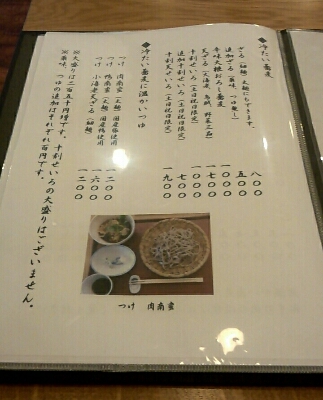 ◆冷たい蕎麦
ざる（細麺）太麺にもできます。 八〇〇
追加ざる（薬味、つゆ無し） 五〇〇
辛味大根おろし蕎麦 一〇〇〇
天ざる（大海老、烏賊、野菜三品） 一七〇〇
十割せいろ（土日祝日限定） 一〇〇〇
追加十割せいろ（土日祝日限定） 七〇〇
十割天せいろ（土日祝日限定） 一九〇〇
◆冷たい蕎麦に温かいつゆ
つけ 肉南蛮（太麺）国産豚使用 一二〇〇
つけ 鴨南蛮（太麺）国産鴨使用 一六〇〇
つけ 小海老天ざる（細麺） 一二〇〇
※大盛りは二百五十円増です。十割せいろの大盛りはございません。
※薬味、つゆの追加はそれぞれ百円です。
つけ 肉南蛮